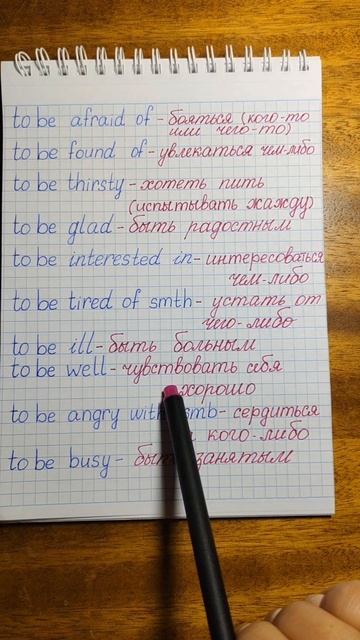 to be afraid of - бояться (кого-то
или чего-то)
to be found of - увлекаться чем-либо
to be thirsty - хотеть пить
(испытывать жажду)
to be glad - быть радостным
to be interested in - интересоваться
чем-либо
to be tired of smth - устать от
чего-либо
to be ill - быть больным
to be well - чувствовать себя
хорошо
to be angry with smb - сердиться
кого-либо
to be busy - быть занятым